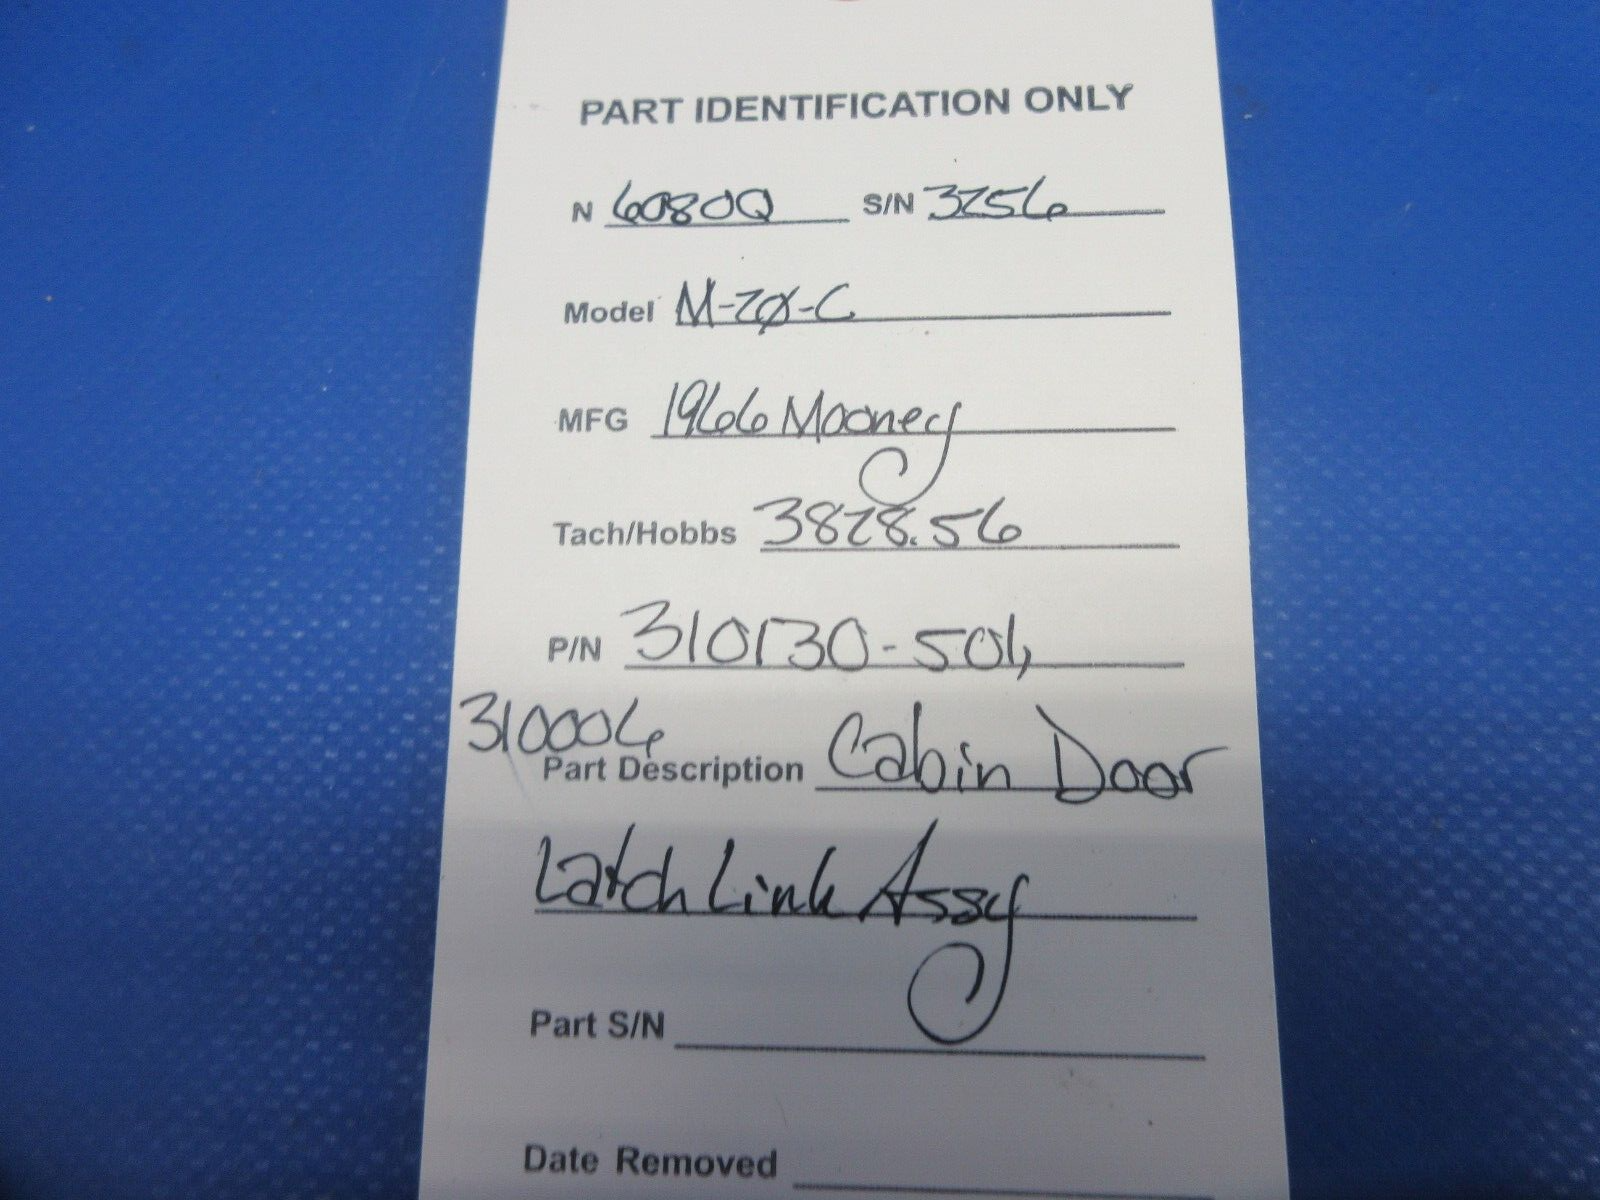 PART IDENTIFICATION ONLY
N 6080Q S/N 3256
Model M-20-C
MFG 1966 Mooney
Tach/Hobbs 3828.56
P/N 310130-501,
310006
Part Description Cabin Door
Latch Link Assy
Part S/N
Date Removed